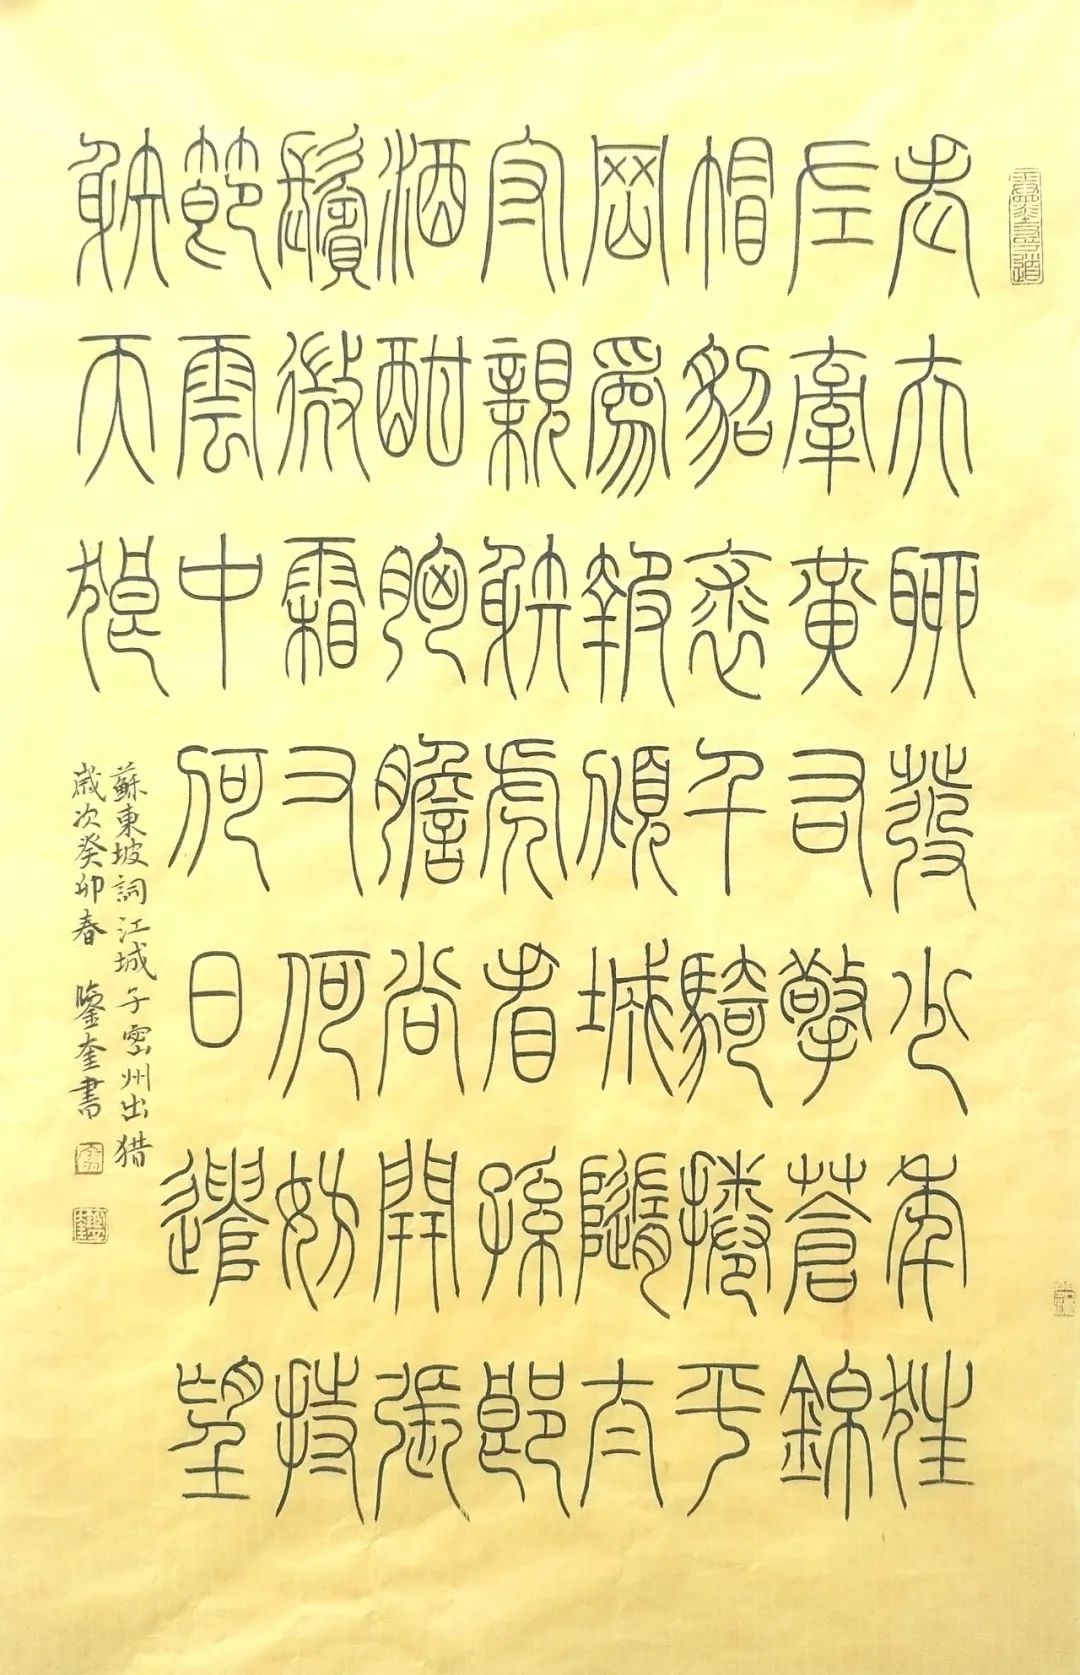 老夫聊發少年狂
左牽黃右擎蒼錦
帽貂裘千騎捲平
岡爲報傾城隨太
守親射虎看孫郎
酒酣胸膽尚開張
鬢微霜又何妨持
節雲中何日遣望
射天狼
蘇東坡詞江城子密州出猎
歲次癸卯春 奎書